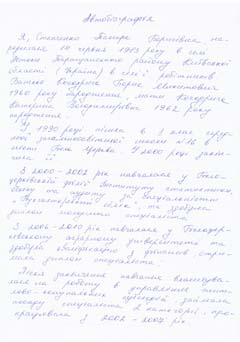 Автобіографія
Я, Степченко Тамара Борисівна на-
родилася 14 червня 1983 року в селі
Таращанського району Київської
області (Україна) в сім'ї робітників
Батько Кочерга Борис Микитович
1960 року народження, мати Кочерга
Катерина Володимирівна 1962 року
народження.
У 1990 році пішла в 1 клас серед-
ньої загальноосвітньої школи №16 в
місті Біла Церква. У 2000 році закін-
чила її
З 2000-2002 рік навчалася у Біло-
церківській філії Інституту статистики,
обліку та аудиту за спеціальністю
"Бухгалтерський облік", та здобула
диплом молодшого спеціаліста.
З 2006-2010 рік навчалася у Білоцер-
ківському аграрному університеті та
здобула кваліфікацію з фінансів отри-
мала диплом спеціаліста.
Після закінчення навчання влаштува-
лася на роботу в управління
субсидій, займала
посаду спеціаліста 2 категорії, про-
працювала з 2002-2007 рік.